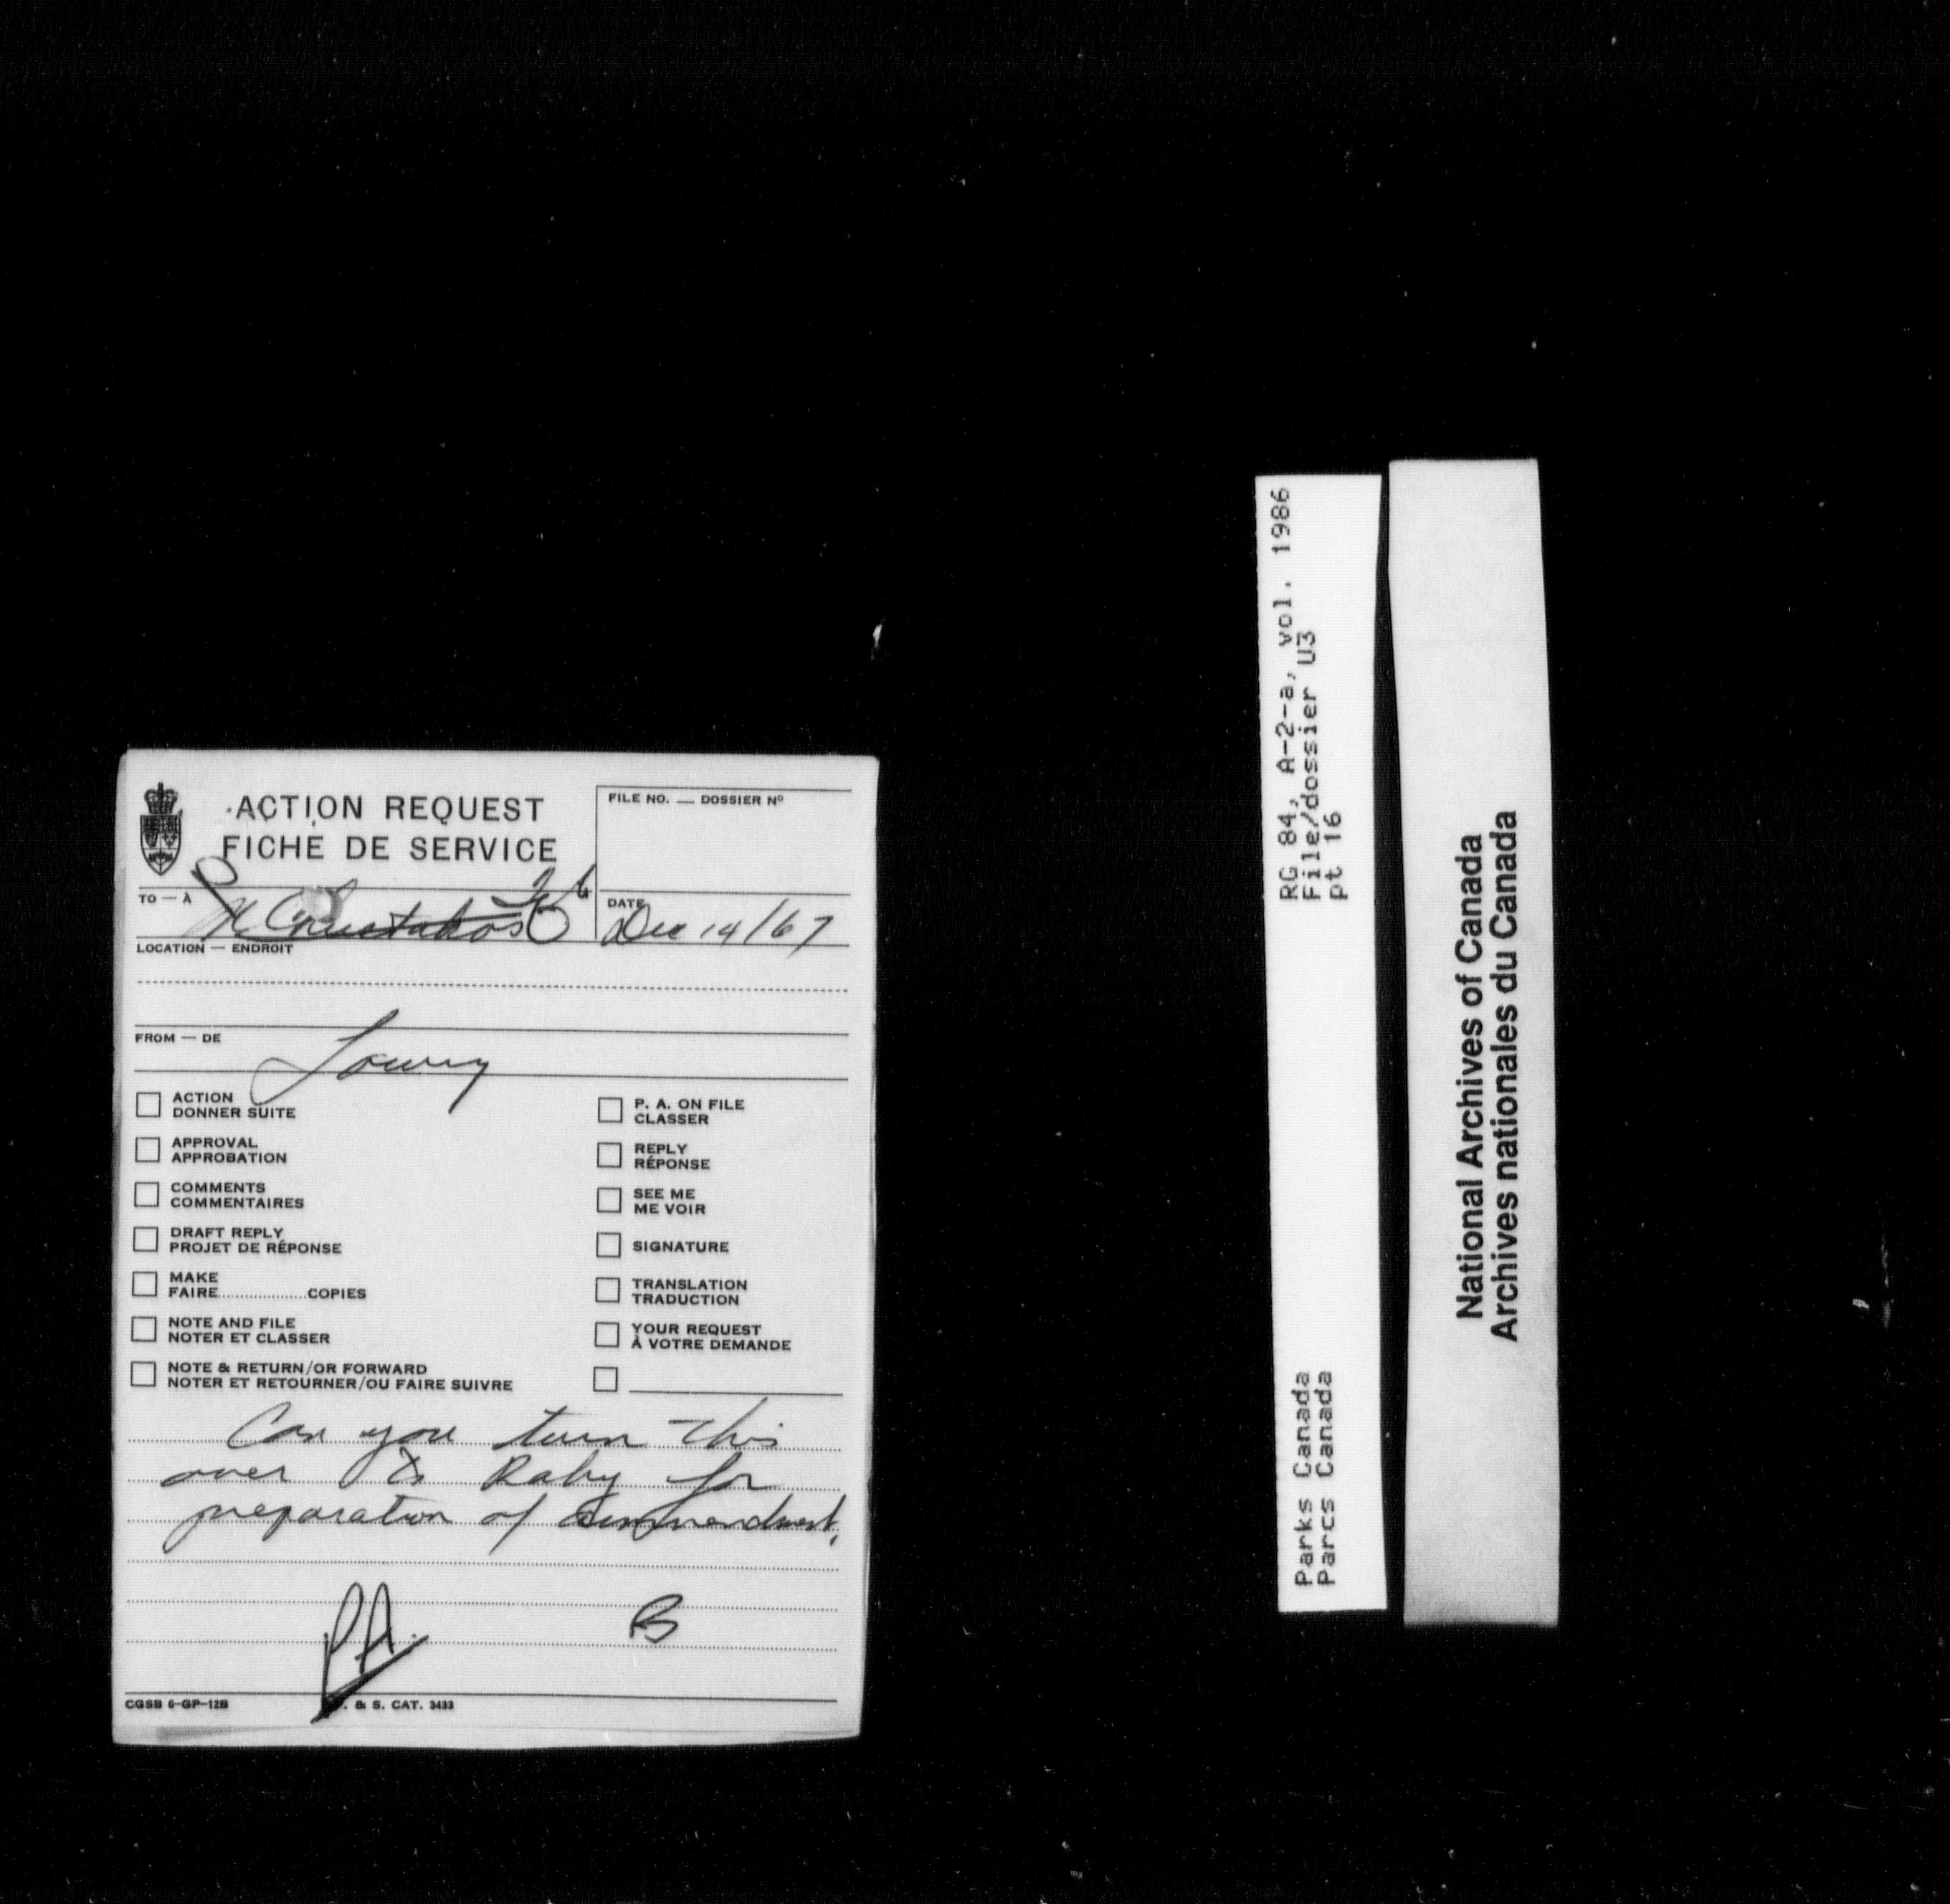 ACTION REQUEST
FICHE DE SERVICE
FILE NO. — DOSSIER Nº
TO — À
DATE
Dec 14/67
LOCATION — ENDROIT
FROM — DE
Lowry
ACTION
DONNER SUITE
APPROVAL
APPROBATION
COMMENTS
COMMENTAIRES
DRAFT REPLY
PROJET DE RÉPONSE
MAKE
FAIRE..................COPIES
NOTE AND FILE
NOTER ET CLASSER
NOTE & RETURN/OR FORWARD
NOTER ET RETOURNER/OU FAIRE SUIVRE
P. A. ON FILE
CLASSER
REPLY
RÉPONSE
SEE ME
ME VOIR
SIGNATURE
TRANSLATION
TRADUCTION
YOUR REQUEST
À VOTRE DEMANDE
Can you turn this
over to Raby for
preparation of ammendment.
PA.
B
CGSB 6-GP-12B
& S. CAT. 3433
RG 84, A-2-a, vol. 1986
File/dossier U3
pt 16
Parks Canada
Parcs Canada
National Archives of Canada
Archives nationales du Canada